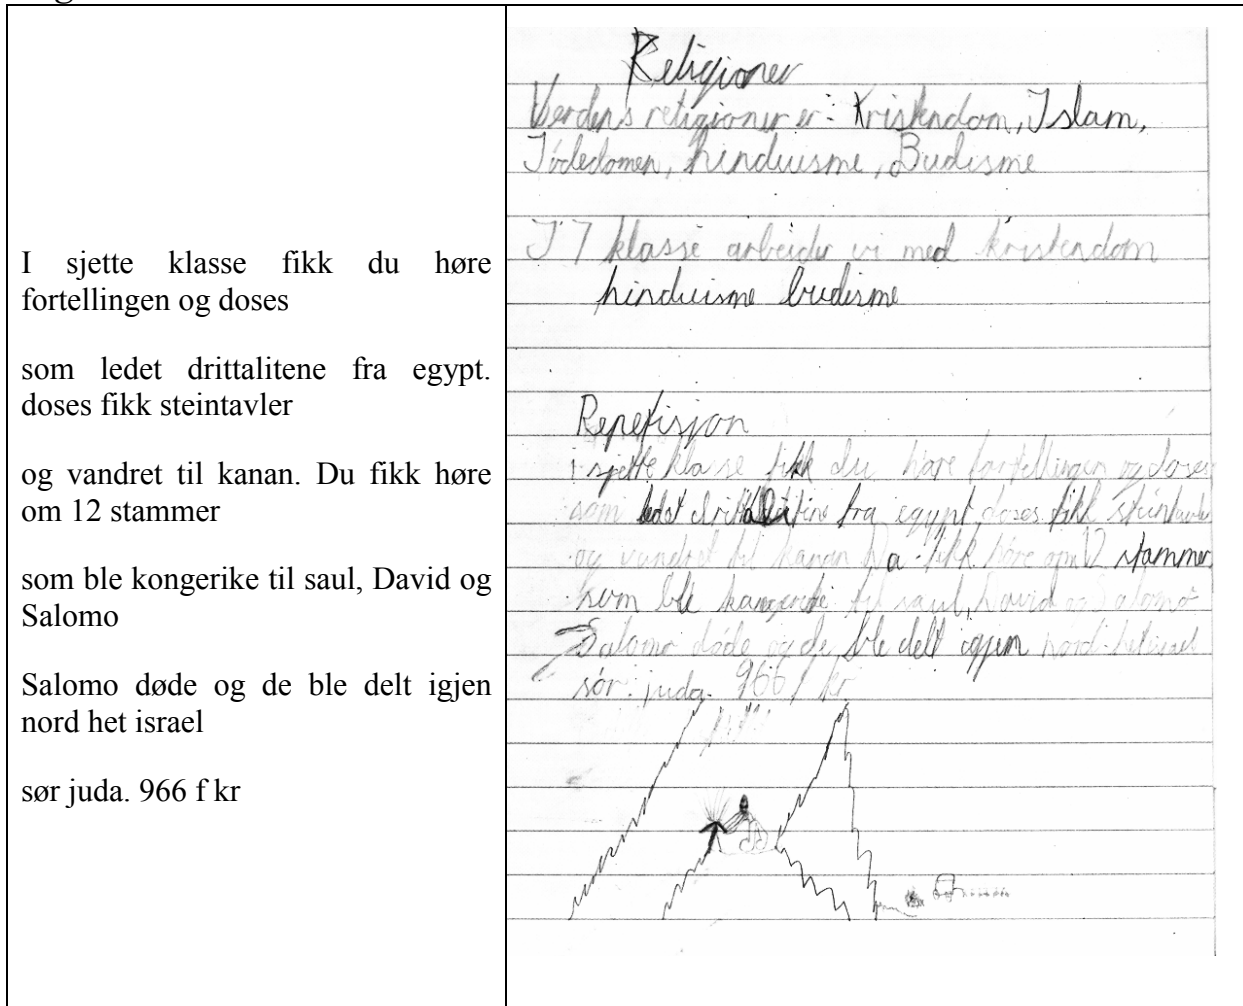 I sjette klasse fikk du høre
fortellingen og doses
som ledet drittalitene fra egypt.
doses fikk steintavler
og vandret til kanan. Du fikk høre
om 12 stammer
som ble kongerike til saul, David og
Salomo
Salomo døde og de ble delt igjen
nord het israel
sør juda. 966 f kr
Religioner
Verdens religioner er: Kristendom, Islam,
Jødedomen, hinduisme, Budisme
I 7 klasse arbeider vi med kristendom
hinduisme budisme
Repetisjon
I sjette klasse fikk du høre fortellingen og doses
som ledet drittalitine fra egypt, doses fikk steintavler
og vandret til kanan Du fikk høre om 12 stammer
som ble kongerike til saul, David og Salomo
Salomo døde og de ble delt igjen nord het israel
sør: juda. 966 f kr